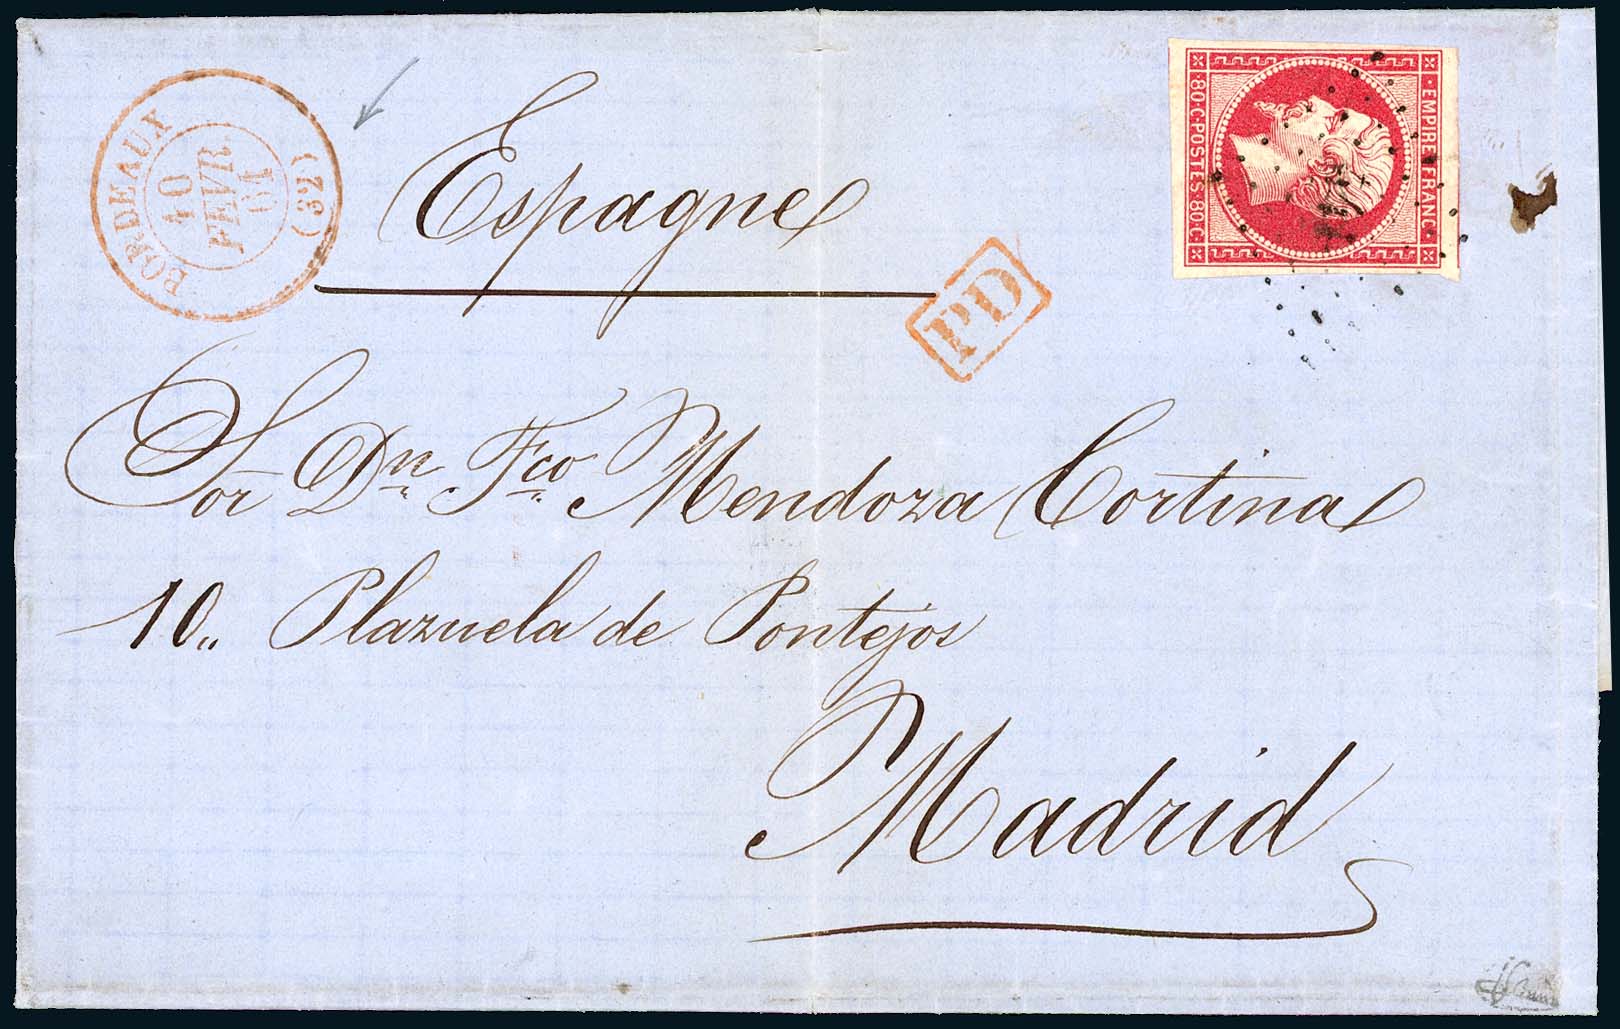 BORDEAUX (32)
10
FEVR
61
Espagne
EMPIRE FRANC.
80·C·POSTES·80·C
PD
Sor Dn Fco Mendoza Cortina
10,, Plazuela de Pontejos
Madrid